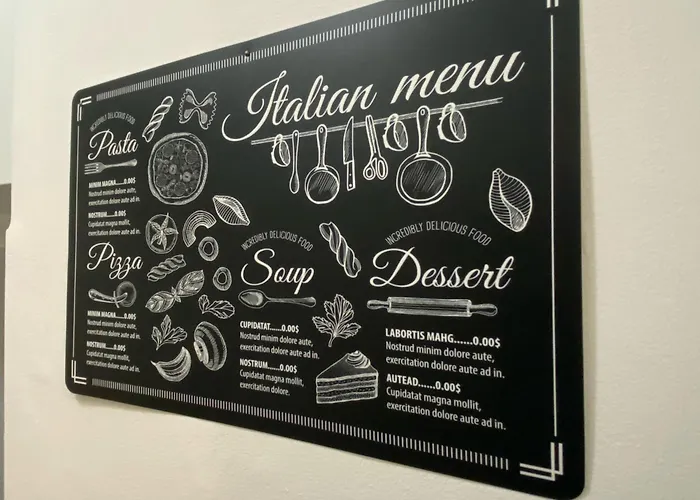 Italian menu
INCREDIBLY DELICIOUS FOOD
Pasta
MINIM MAGNA......0.00$
Nostrud minim dolore aute,
exercitation dolore aute ad in.
NOSTRUM......0.00$
Cupidatat magna mollit,
exercitation dolore aute ad in.
Pizza
MINIM MAGNA......0.00$
Nostrud minim dolore aute,
exercitation dolore aute ad in.
NOSTRUM......0.00$
Cupidatat magna mollit,
exercitation dolore aute ad in.
INCREDIBLY DELICIOUS FOOD
Soup
CUPIDATAT......0.00$
Nostrud minim dolore aute,
exercitation dolore aute ad in.
NOSTRUM......0.00$
Cupidatat magna mollit,
exercitation dolore.
INCREDIBLY DELICIOUS FOOD
Dessert
LABORTIS MAHG......0.00$
Nostrud minim dolore aute,
exercitation dolore aute ad in.
AUTEAD......0.00$
Cupidatat magna mollit,
exercitation dolore aute ad in.